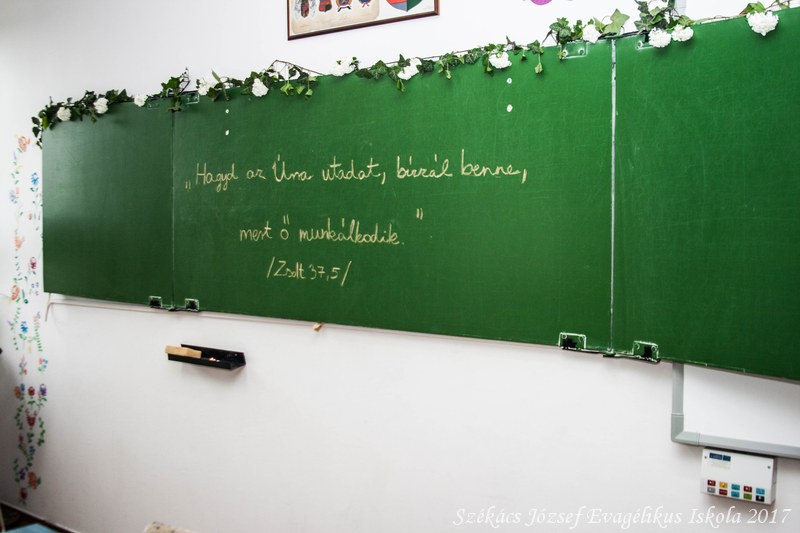 „Hagyd az Úrra utadat, bízzál benne,
mert ő munkálkodik."
/Zsolt 37,5/
Székács József Evagélikus Iskola 2017